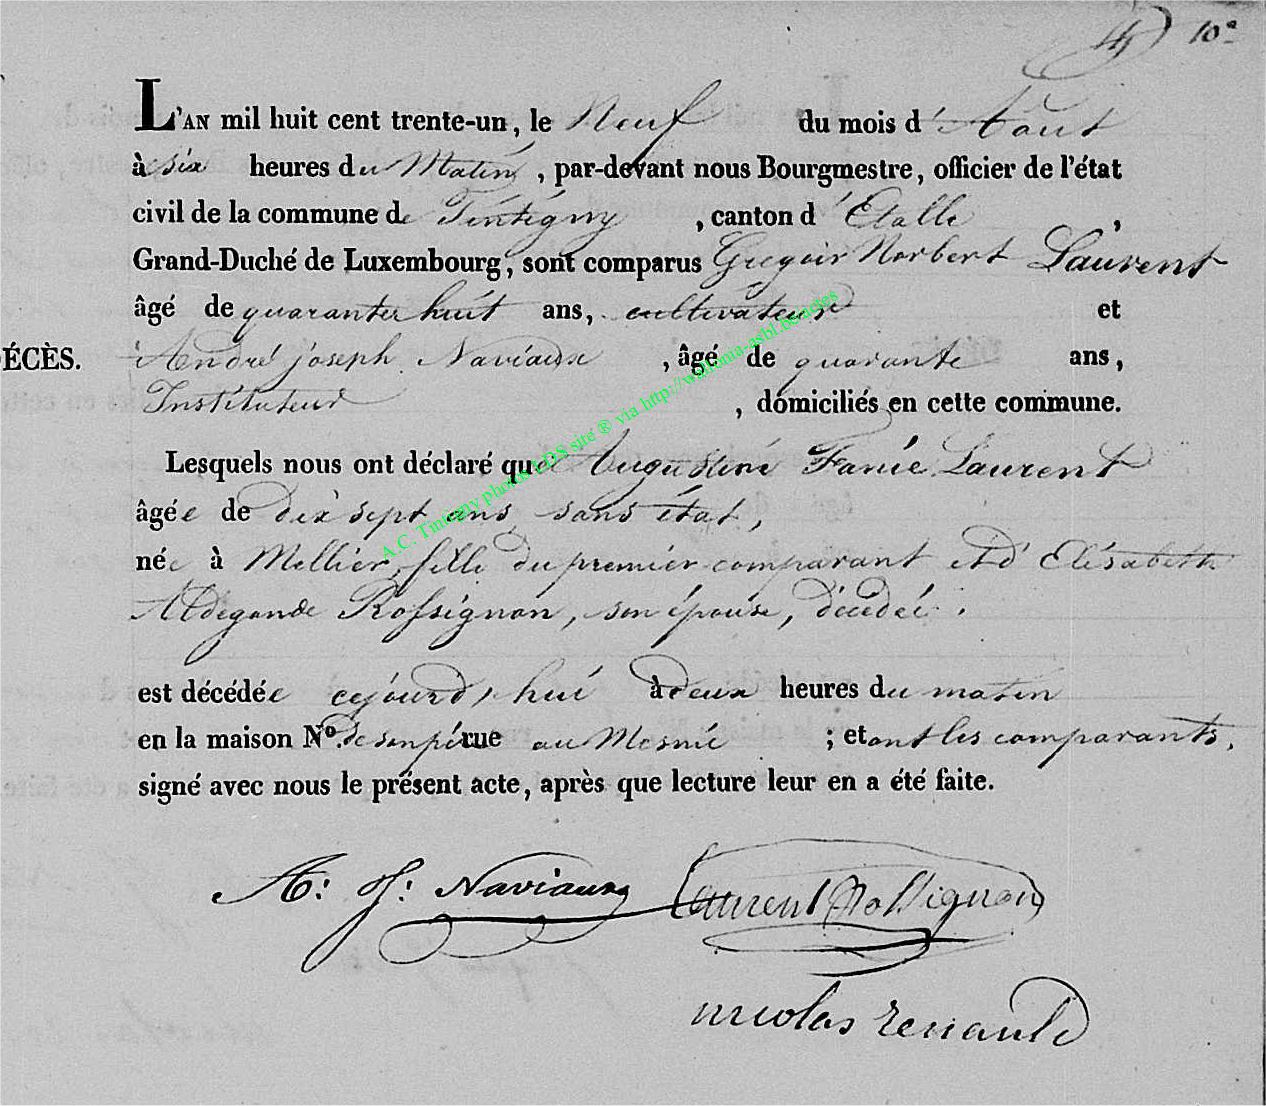 10e
L'AN mil huit cent trente-un, le Neuf du mois d'Aout
à six heures du Matin, par-devant nous Bourgmestre, officier de l'état
civil de la commune de Tintigny, canton d'Etalle,
Grand-Duché de Luxembourg, sont comparus Gregoir Norbert Laurent
âgé de quarante huit ans, cultivateur et
DÉCÈS. André joseph Naviaux, âgé de quarante ans,
Instituteur, domiciliés en cette commune.
Lesquels nous ont déclaré que Augustine Laurent
âgée de dix sept ans, sans état,
née à Mellier, fille du premier comparant et d'Elisabeth
Aldegonde Rossignon, son épouse, décédée.
est décédée cejourd'hui à deux heures du matin
en la maison No. de son père rue au Mesnil ; et ont les comparants,
signé avec nous le présent acte, après que lecture leur en a été faite.
A: J: Naviaux Laurent Rossignon
nicolas renauld
A.C. Tintigny photos LDS site ® via http://wallonia-asbl.be/actes